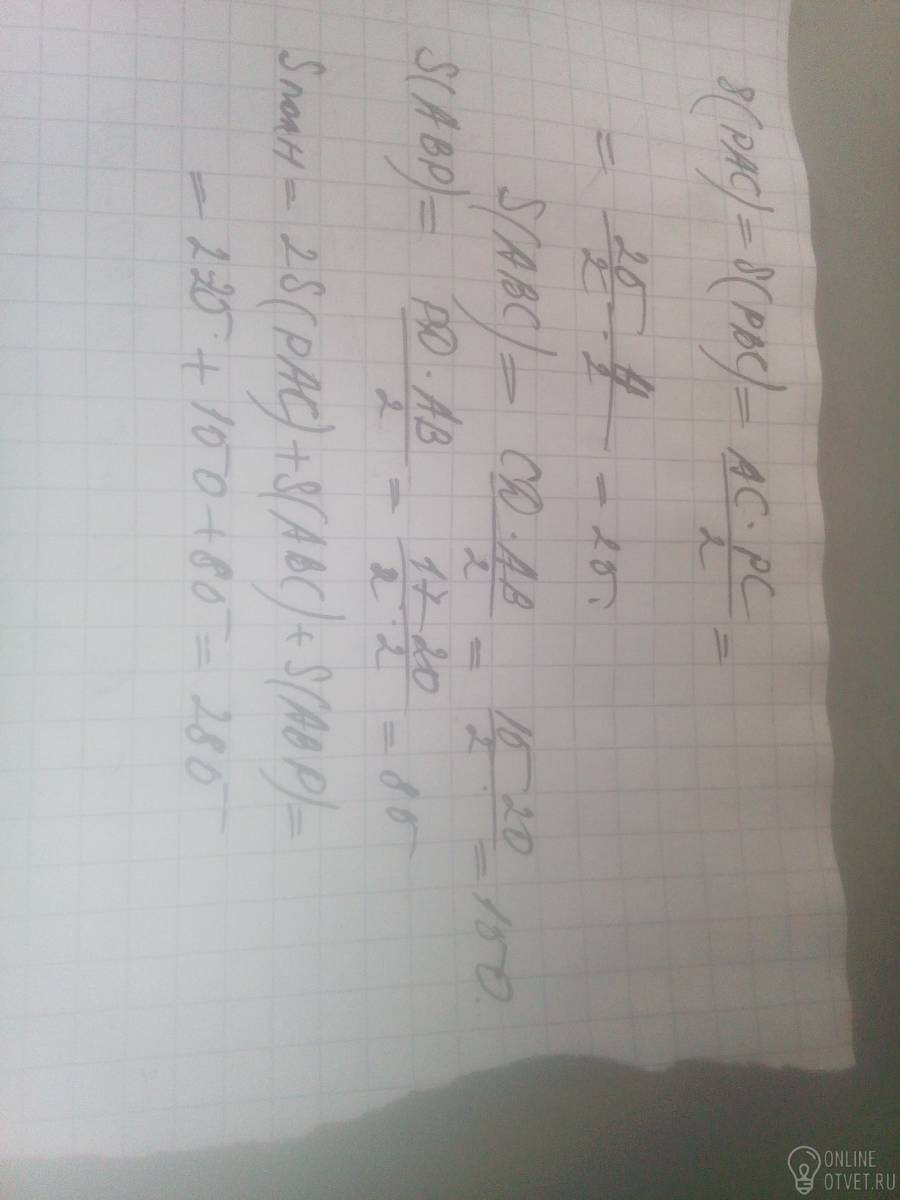 S(PAC) = S(PBC) = AC · PC / 2 =
= 25 · 4 / 2 · 2 = 25.
S(ABC) = CD · AB / 2 = 15 20 / 2 · = 150.
S(ABP) = PD · AB / 2 = 17 20 / 2 · 2 = 85
Sполн = 2S(PAC) + S(ABC) + S(ABP) =
= 2 25 + 150 + 85 = 285
ONLINE
OTVET.RU